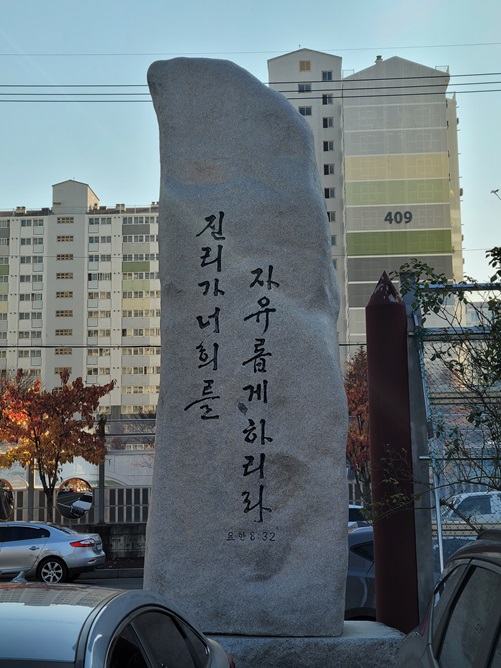 진리가 너희를
자유롭게 하리라
요한 8:32
409